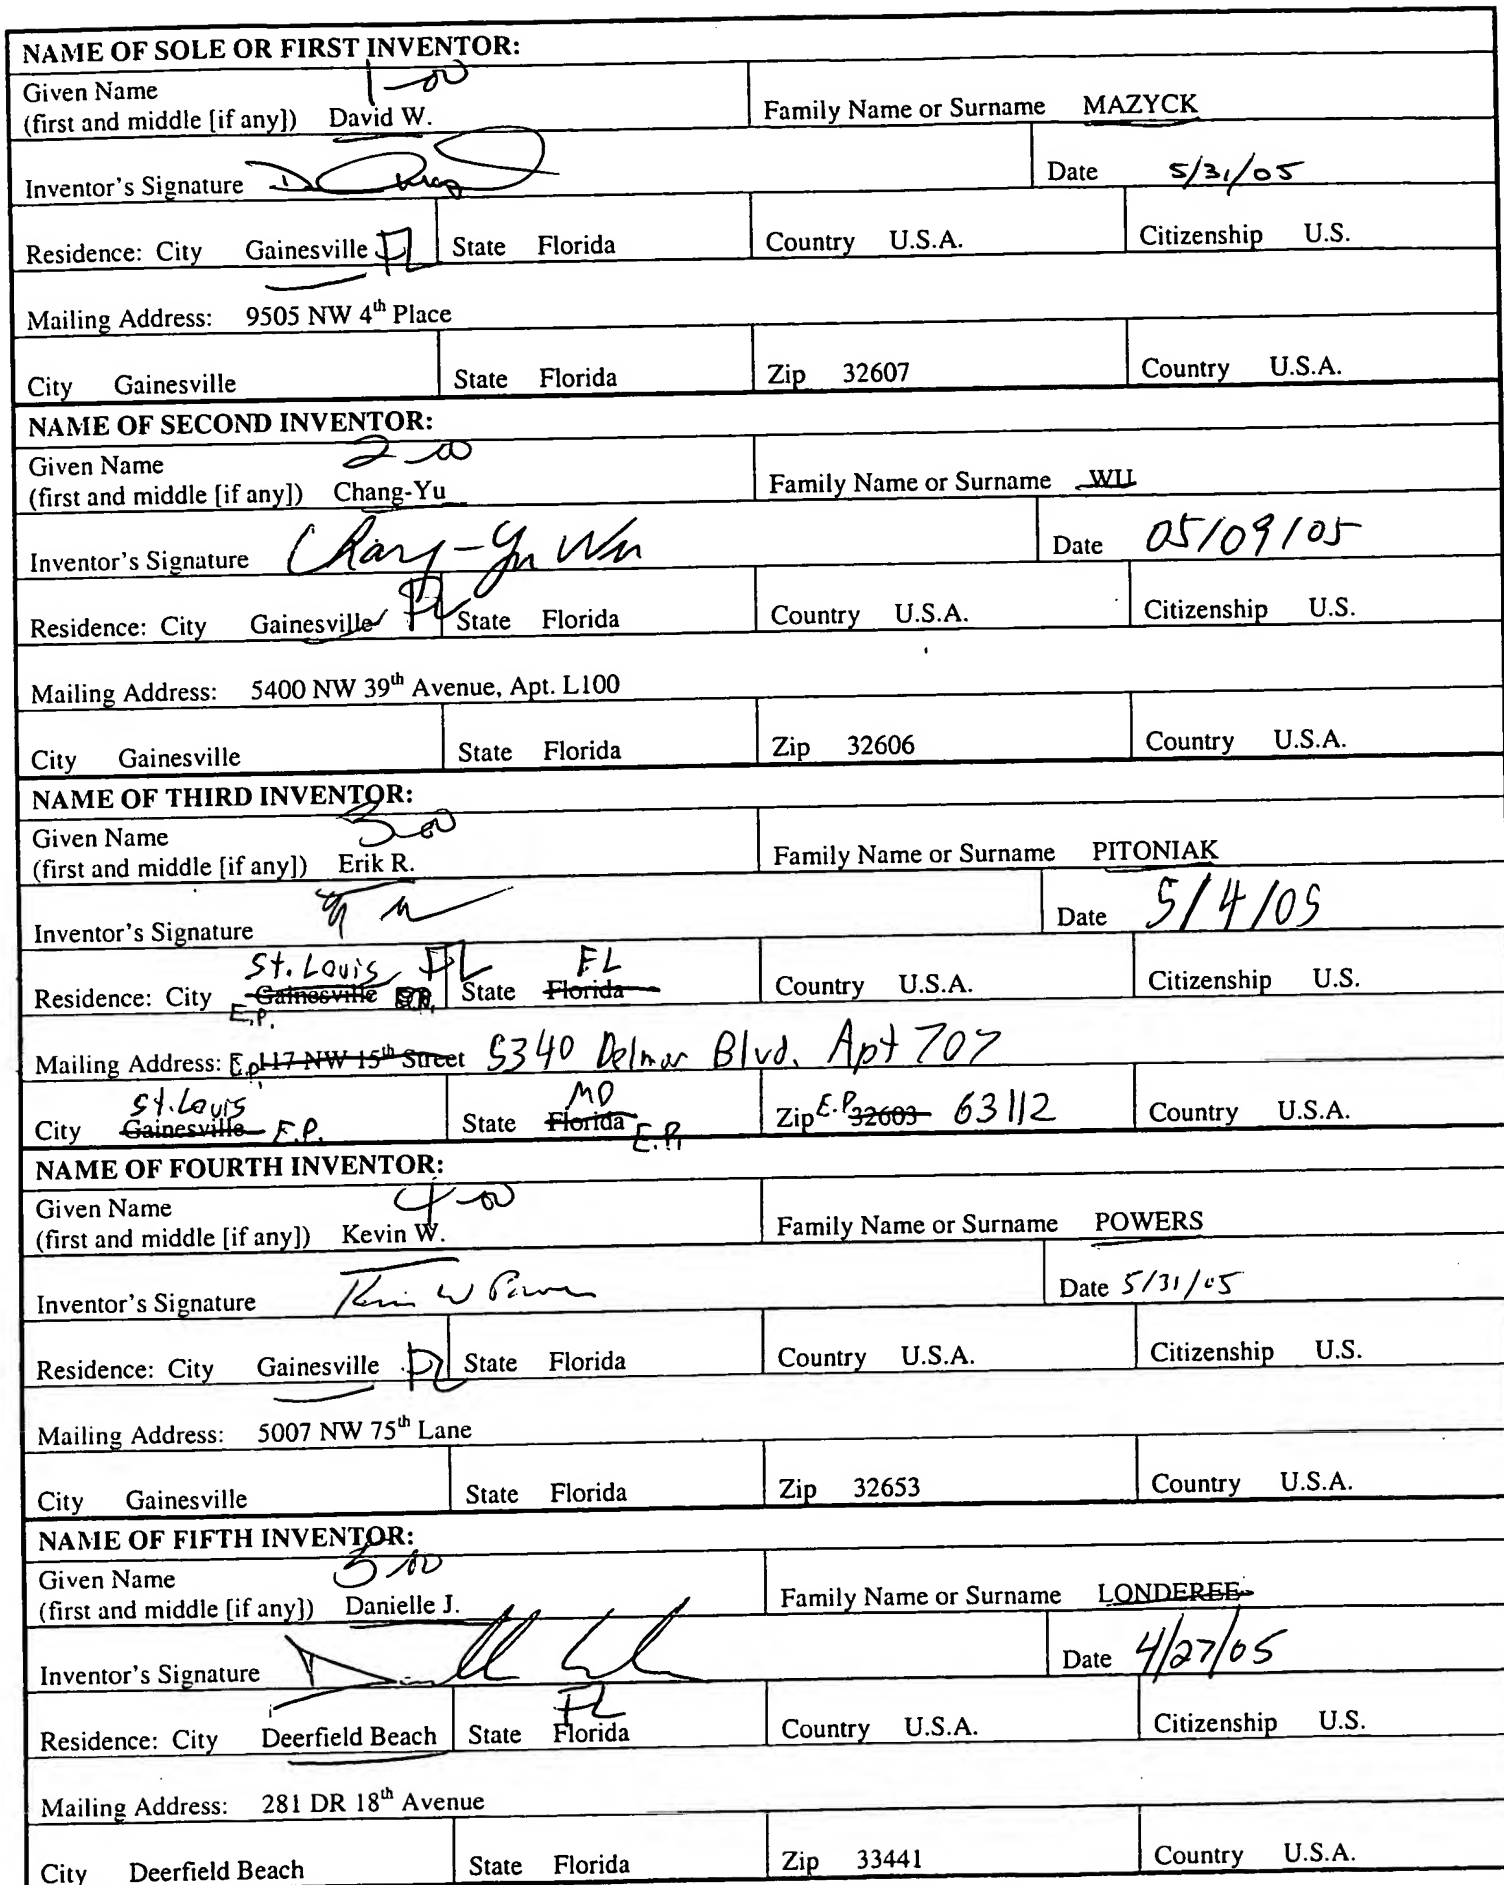 NAME OF SOLE OR FIRST INVENTOR:
1-00
Given Name
(first and middle [if any]) David W. Family Name or Surname MAZYCK
Inventor's Signature Date 5/31/05
Residence: City Gainesville FL State Florida Country U.S.A. Citizenship U.S.
Mailing Address: 9505 NW 4th Place
City Gainesville State Florida Zip 32607 Country U.S.A.
NAME OF SECOND INVENTOR:
2-00
Given Name
(first and middle [if any]) Chang-Yu Family Name or Surname WU
Inventor's Signature Chang-Yu Wu Date 05/09/05
Residence: City Gainesville FL State Florida Country U.S.A. Citizenship U.S.
Mailing Address: 5400 NW 39th Avenue, Apt. L100
City Gainesville State Florida Zip 32606 Country U.S.A.
NAME OF THIRD INVENTOR:
3-00
Given Name
(first and middle [if any]) Erik R. Family Name or Surname PITONIAK
Inventor's Signature Date 5/4/05
St. Louis FL FL
Residence: City Gainesville State Florida Country U.S.A. Citizenship U.S.
E.P.
Mailing Address: E.P. 117 NW 15th Street 5340 Delmar Blvd. Apt 707
St. Louis MO
City Gainesville E.P. State Florida E.P. Zip E.P. 32603 63112 Country U.S.A.
NAME OF FOURTH INVENTOR:
4-00
Given Name
(first and middle [if any]) Kevin W. Family Name or Surname POWERS
Inventor's Signature Kevin W Powers Date 5/31/05
Residence: City Gainesville FL State Florida Country U.S.A. Citizenship U.S.
Mailing Address: 5007 NW 75th Lane
City Gainesville State Florida Zip 32653 Country U.S.A.
NAME OF FIFTH INVENTOR:
5-00
Given Name
(first and middle [if any]) Danielle J. Family Name or Surname LONDEREE
Inventor's Signature Date 4/27/05
FL
Residence: City Deerfield Beach State Florida Country U.S.A. Citizenship U.S.
Mailing Address: 281 DR 18th Avenue
City Deerfield Beach State Florida Zip 33441 Country U.S.A.